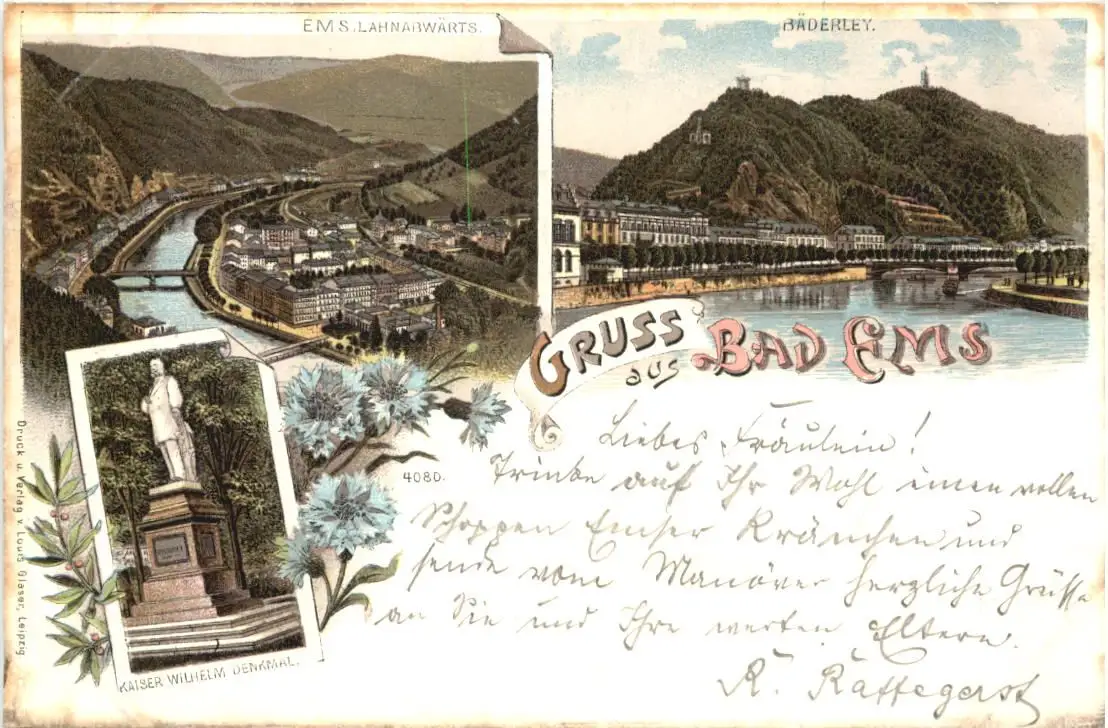 EMS, LAHNABWÄRTS.
BÄDERLEY.
GRUSS
aus
BAD EMS
Liebes Fräulein!
Trinke auf Ihr Wohl einen vollen
Schoppen Emser Kränchen und
sende vom Manöver herzliche Grüsse
an Sie und Ihre werten Eltern.
4080.
KAISER WILHELM DENKMAL.
Druck u. Verlag v. Louis Glaser, Leipzig